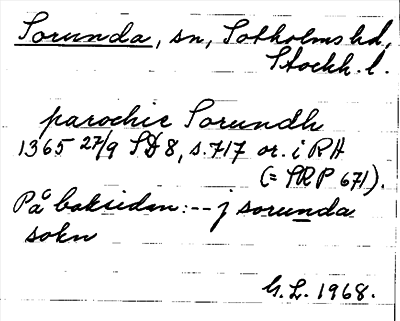 Sorunda, sn, Sotholms hd,
Stockh. l.
parochie Sorundh
1365 27/9 SD 8, s. 717 or. i RA
(= SRP 671).
På baksidan: -- j sorunda
sokn
G. L. 1968.